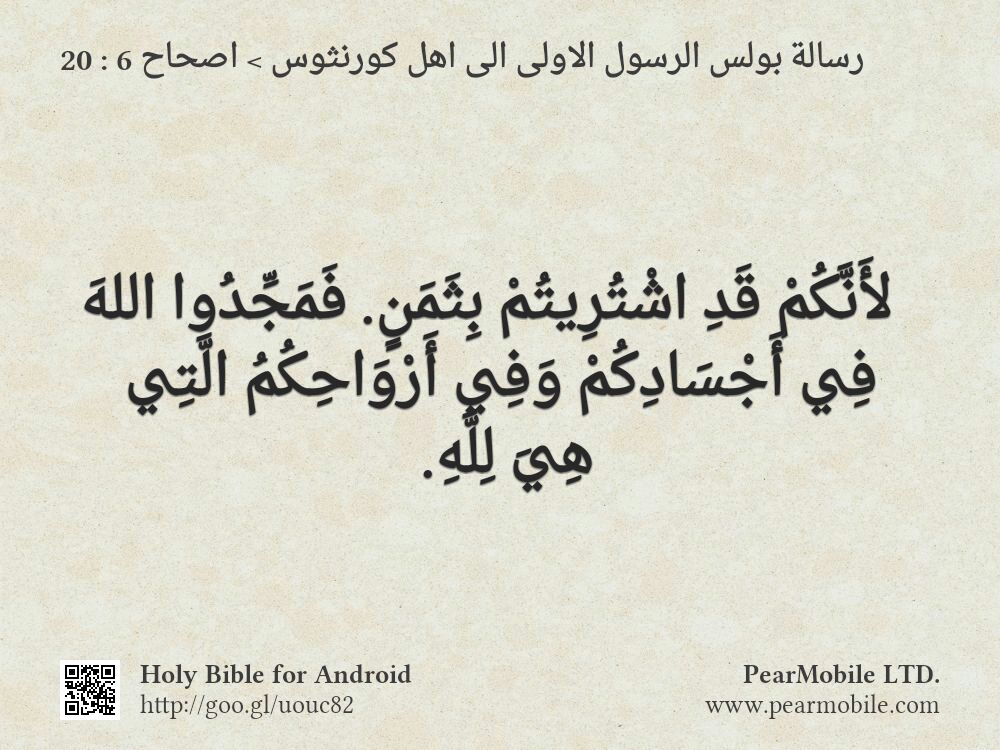 رسالة بولس الرسول الاولى الى اهل كورنثوس > اصحاح 6 : 20
لأَنَّكُمْ قَدِ اشْتُرِيتُمْ بِثَمَنٍ. فَمَجِّدُوا اللهَ
فِي أَجْسَادِكُمْ وَفِي أَرْوَاحِكُمُ الَّتِي
هِيَ لِلَّهِ.
Holy Bible for Android
http://goo.gl/uouc82
PearMobile LTD.
www.pearmobile.com